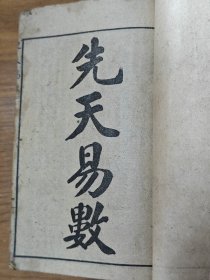 先天易數